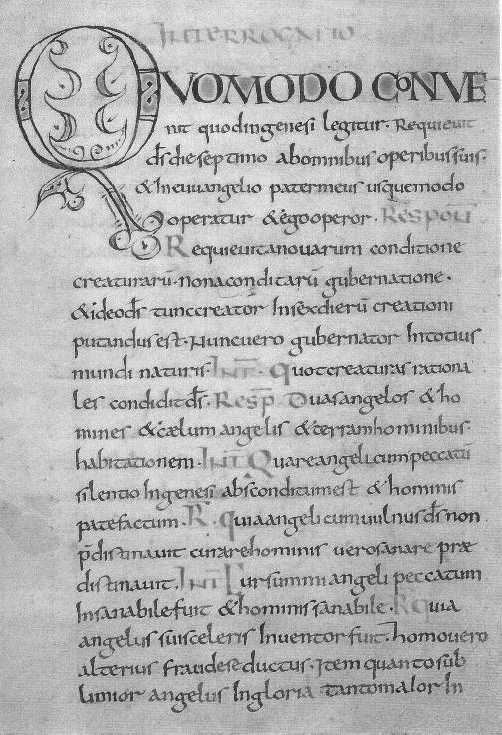 INTERROGATIO
QUOMODO CONVE
nit quod in genesi legitur. Requievit
d̄s die septimo ab omnibus operibus suis.
& in euuangelio pater meus usque modo
operatur & ego operor. RESPON̄
Requievit a novarum conditione
creaturarū. non a conditarū gubernatione.
& ideo d̄s tunc creator in sex dierū creationi
putandus est. Nunc vero gubernator in totius
mundi naturis. INT̄. Quot creaturas rationa
les condidit d̄s. RESP̄. Duas angelos & ho
mines & cælum angelis & terram hominibus
habitationem. INT̄ Quare angelicum peccatū
silentio in genesi absconditum est & hominis
patefactum. R̄. Quia angelicum vulnus d̄s non
p̄distinavit curare hominis vero sanare præ
distinavit. INT̄ Cur summi angeli peccatum
insanabile fuit & hominis sanabile. R Quia
angelus sui sceleris inventor fuit. homo vero
alterius fraude seductus. Item quanto sub
limior angelus in gloria tanto maior in